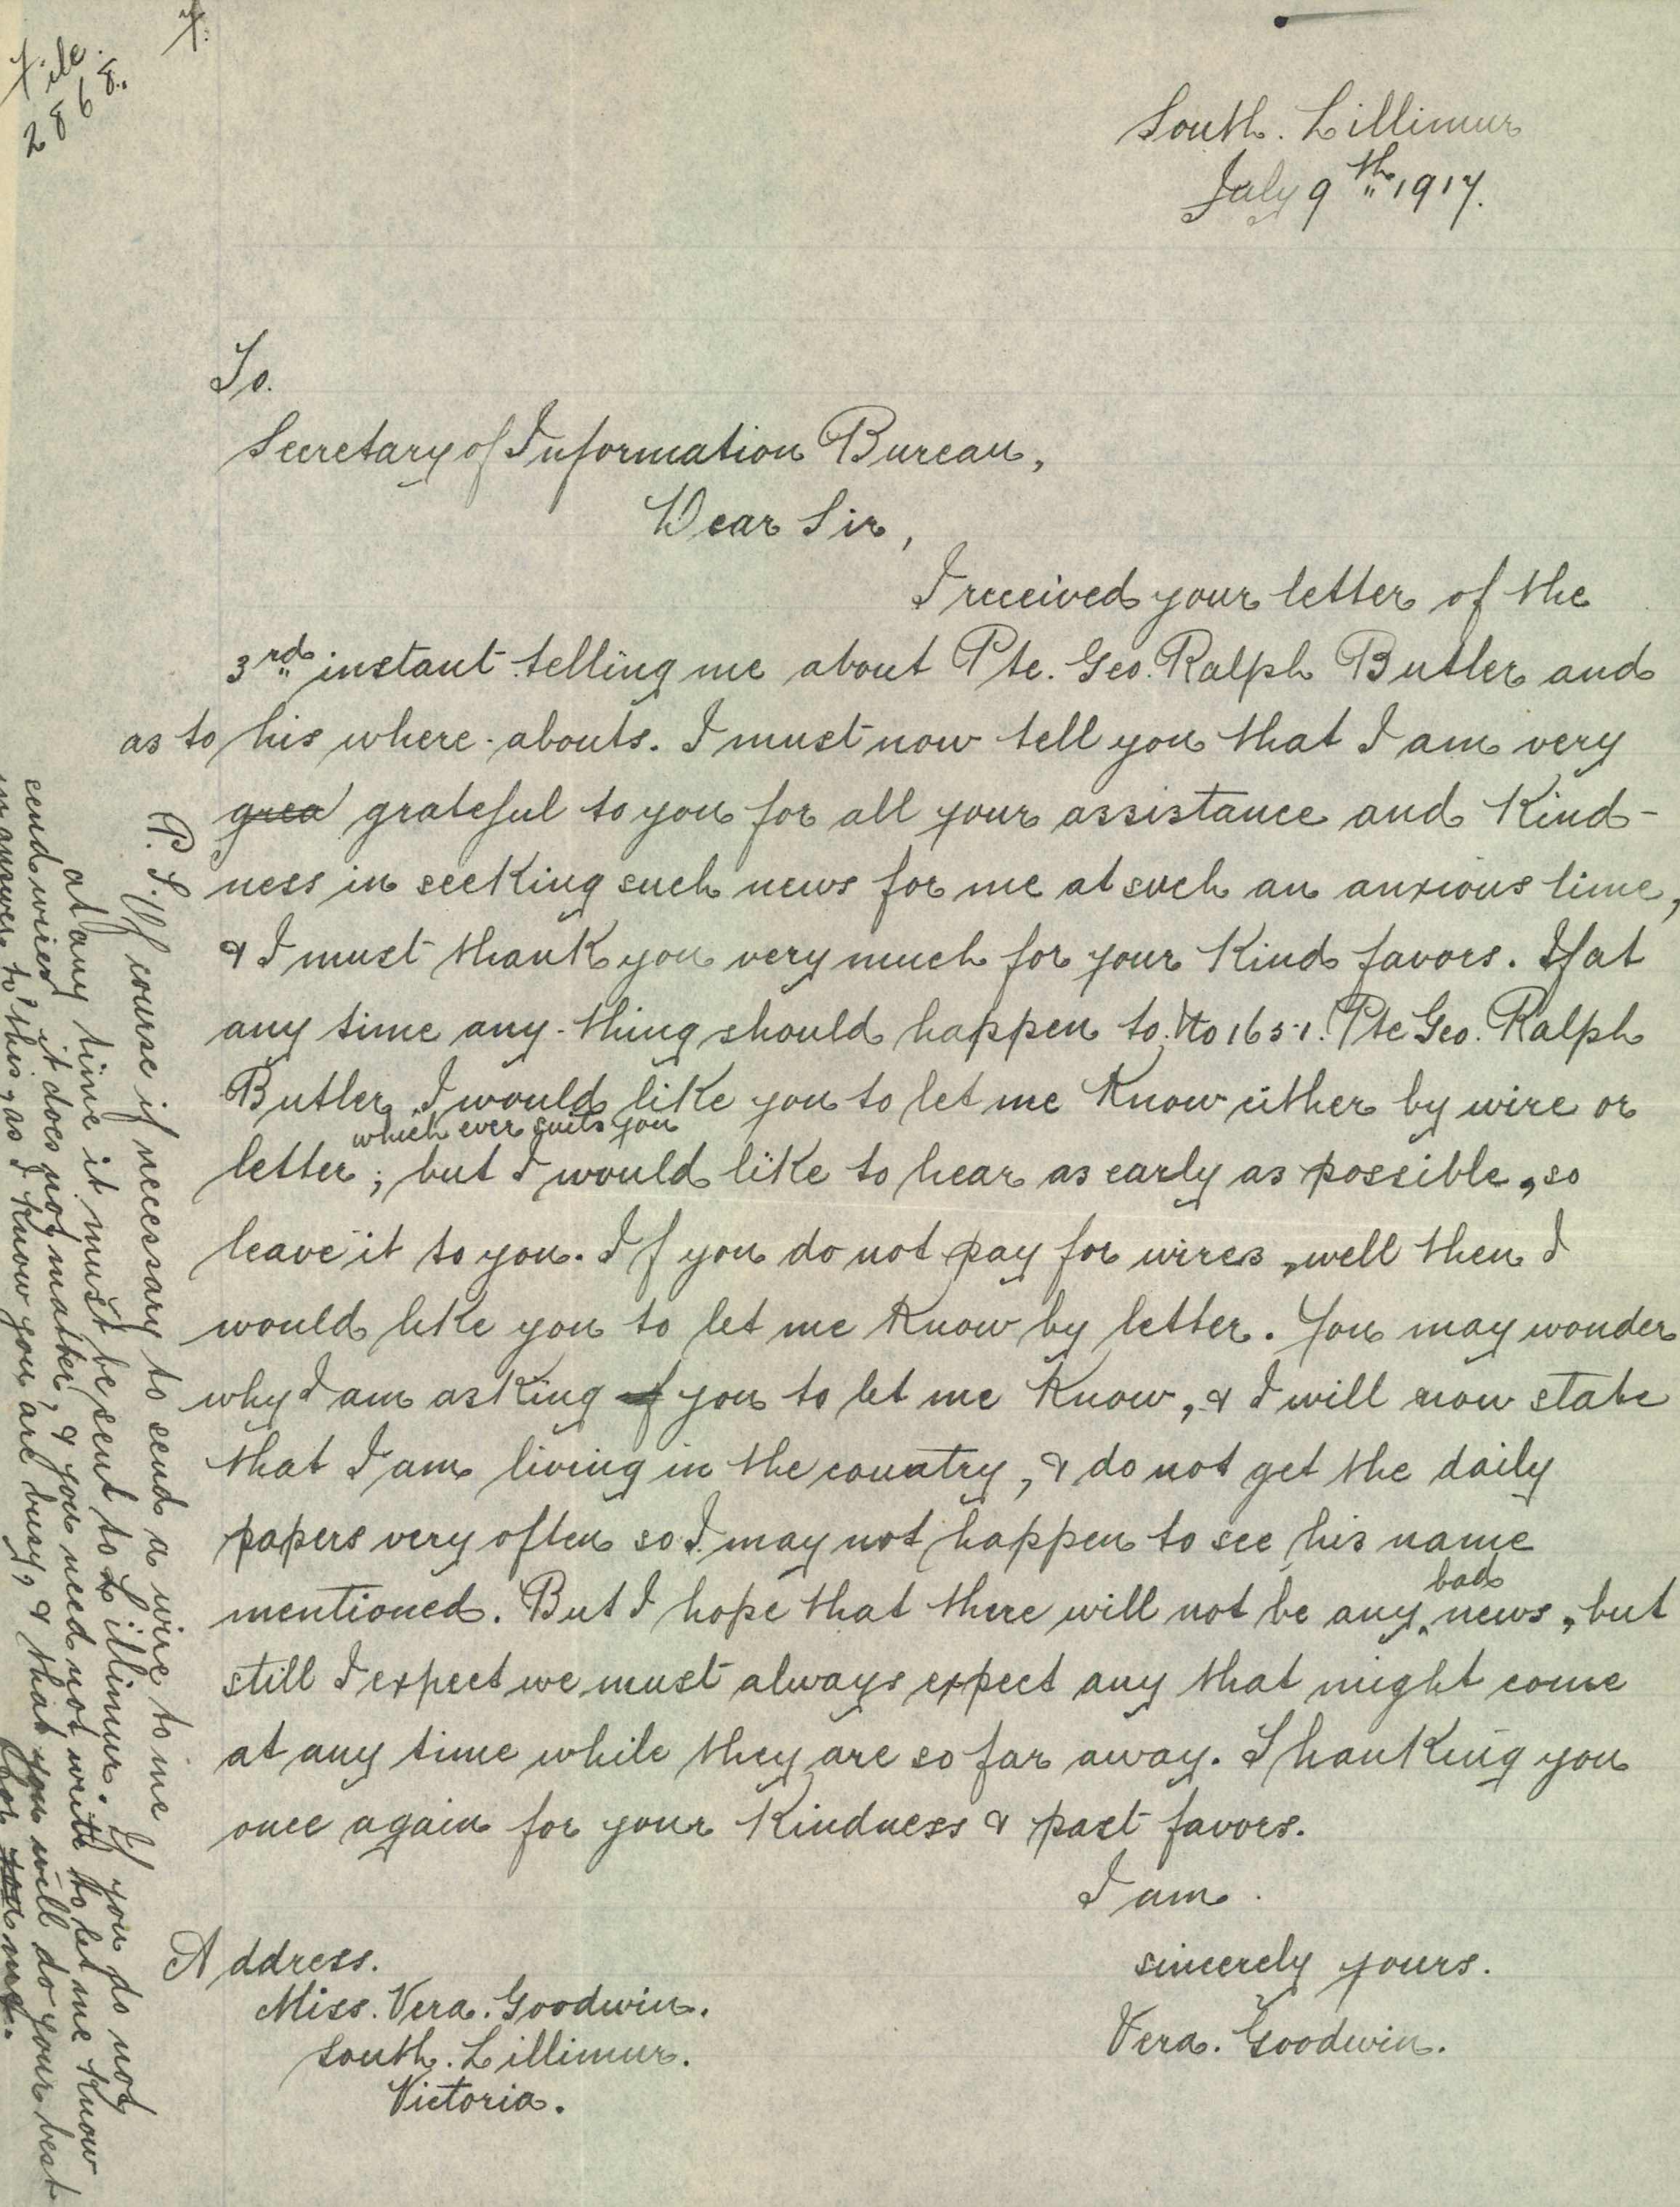 File.
2868.
South. Lillimur
July 9th 1917.
To.
Secretary of Information Bureau,
Dear Sir,
I received your letter of the
3rd instant telling me about Pte. Geo. Ralph Butler and
as to his where-abouts. I must now tell you that I am very
grea grateful to you for all your assistance and kind-
ness in seeking such news for me at such an anxious time,
& I must thank you very much for your kind favors. If at
any time any-thing should happen to. No 1651. Pte Geo. Ralph
Butler, I would like you to let me know either by wire or
which ever suits you
letter; but I would like to hear as early as possible, so
leave it to you. If you do not pay for wires, well then I
would like you to let me know by letter. You may wonder
why I am asking of you to let me know, & I will now state
that I am living in the country, & do not get the daily
papers very often so I may not happen to see his name
bad
mentioned. But I hope that there will not be any news, but
still I expect we must always expect any that might come
at any time while they are so far away. Thanking you
once again for your kindness & past favors.
I am.
sincerely yours.
Vera. Goodwin.
Address.
Miss. Vera. Goodwin.
South. Lillimur.
Victoria.
P.S. Of course if necessary to send a wire to me
at any time it must be sent to Lillimur. If you do not
send wires it does not matter, & you need not write to let me know
in answer to this, as I know you are busy, & that you will do your best
for me.